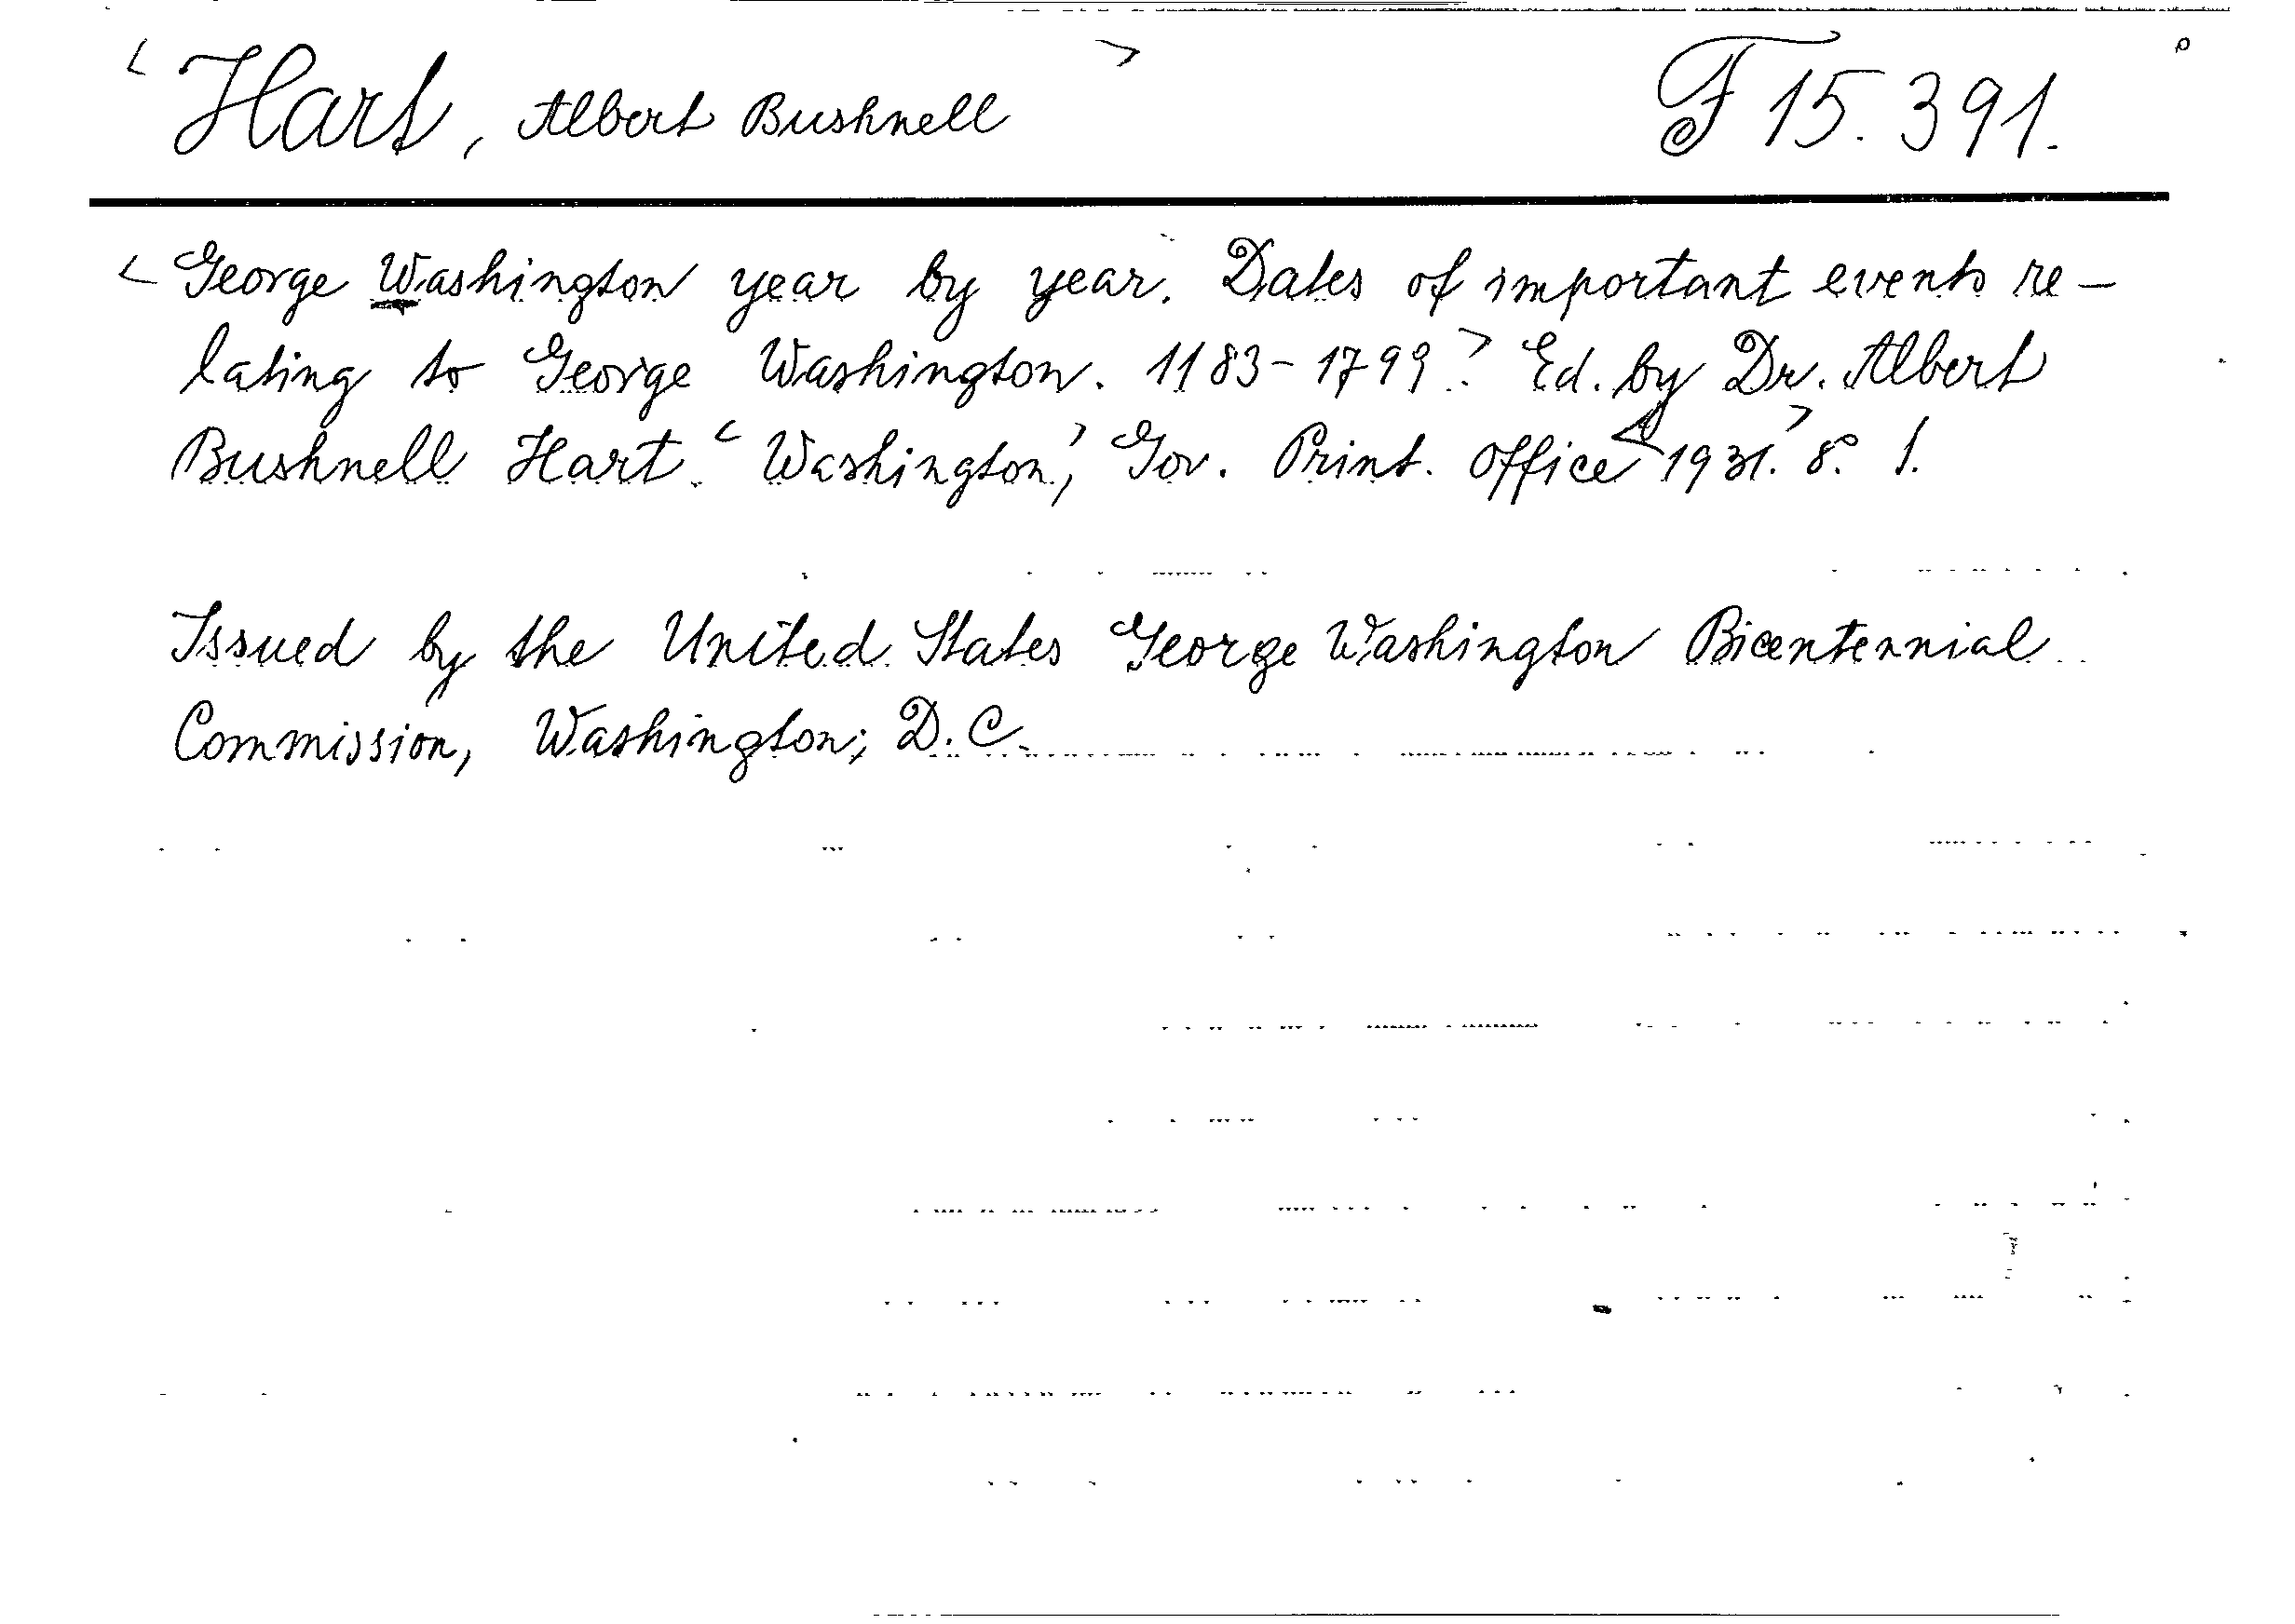 < Hart, Albert Bushnell > F 15.391.
< George Washington year by year. Dates of important events re-
lating to George Washington. 1183-1799.> Ed. by Dr. Albert
Bushnell Hart. < Washington,> Gov. Print. Office < 1931.> 8°. 1.
Issued by the United States George Washington Bicentennial
Commission, Washington, D.C.